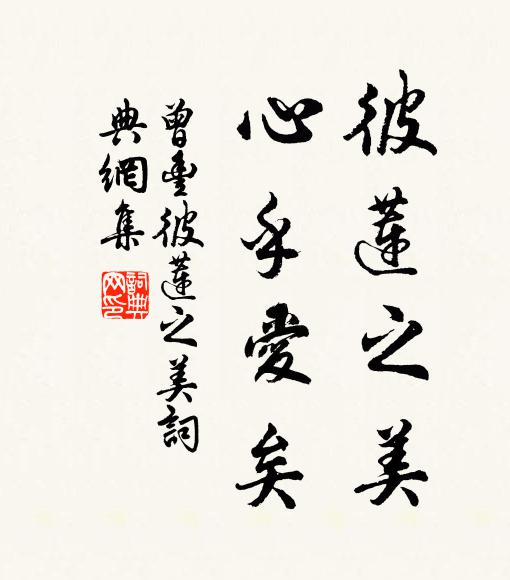 彼蓮之美
心乎愛矣
曾豊彼蓮之美詞
典網集
詞典
网印